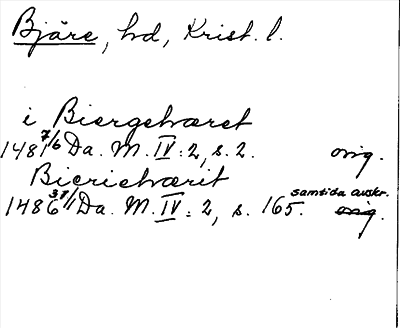 Bjäre, hd, Krist. l.
i Biergehæret
1481 7/6 Da. M. IV: 2, s. 2. orig.
Bierichærit
1486 31/1 Da. M. IV: 2, s. 165. samtida avskr. orig.